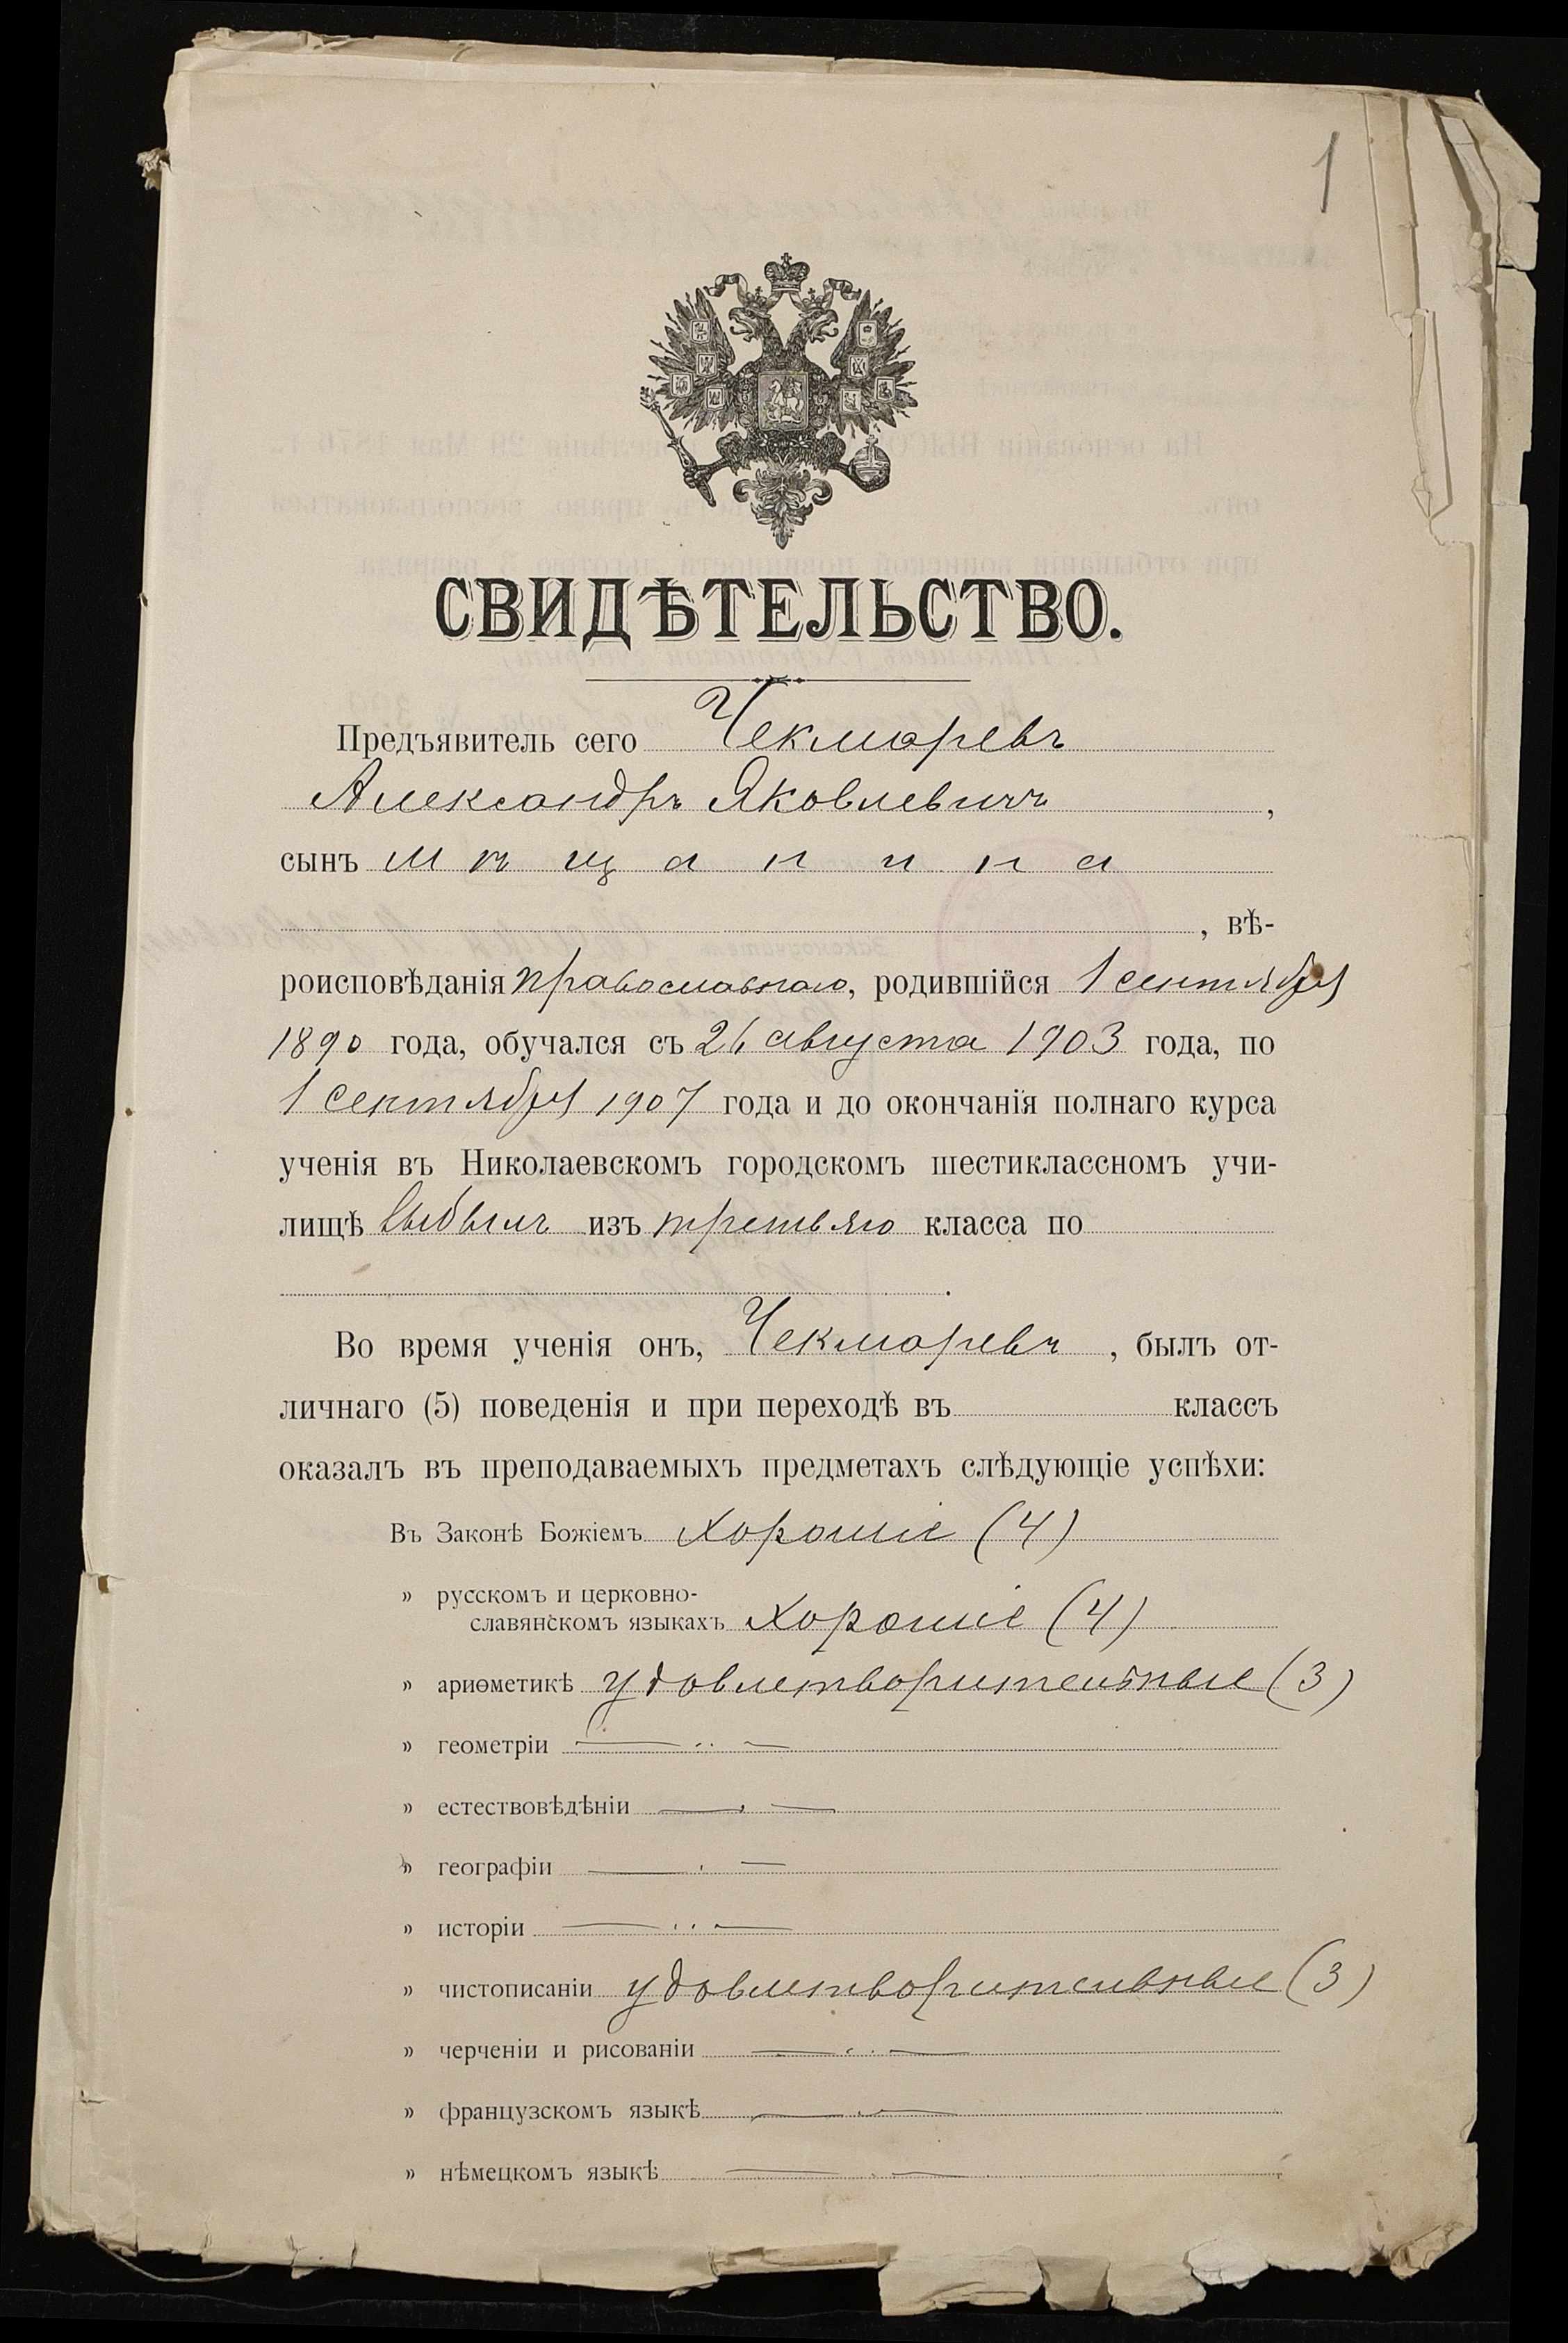 1
СВИДѢТЕЛЬСТВО.
Предъявитель сего Чекмаревъ
Александръ Яковлевичъ,
сынъ мѣщанина
, вѣ-
роисповѣданія православнаго, родившійся 1 сентября
1890 года, обучался съ 26 августа 1903 года, по
1 сентября 1907 года и до окончанія полнаго курса
ученія въ Николаевскомъ городскомъ шестиклассномъ учи-
лищѣ выбылъ изъ третьяго класса по
.
Во время ученія онъ, Чекмаревъ, былъ от-
личнаго (5) поведенія и при переходѣ въ классъ
оказалъ въ преподаваемыхъ предметахъ слѣдующіе успѣхи:
Въ Законѣ Божіемъ хорошіе (4)
» русскомъ и церковно-
славянскомъ языкахъ хорошіе (4)
» ариѳметикѣ удовлетворительные (3)
» геометріи — ·· —
» естествовѣдѣніи — · —
» географіи — · —
» исторіи — ·· —
» чистописаніи удовлетворительные (3)
» черченіи и рисованіи — ·· —
» французскомъ языкѣ — · —
» нѣмецкомъ языкѣ — · —